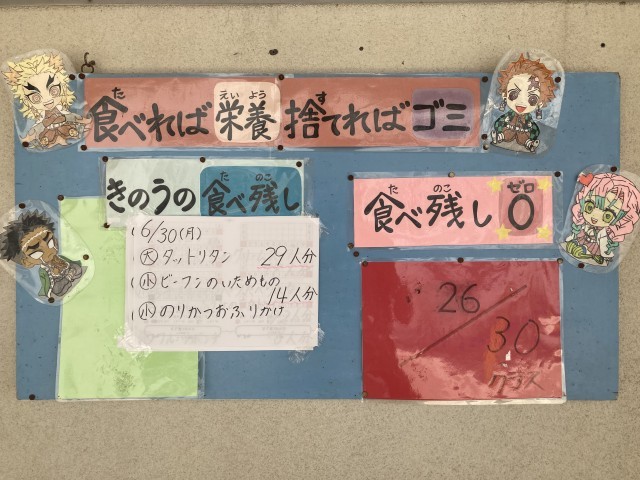 食べれば栄養 捨てればゴミ
きのうの食べ残し
6/30(月)
大 タットリタン 29人分
小 ビーフンのいためもの
14人分
小 のりかつおふりかけ
食べ残し0
26/30
クラス